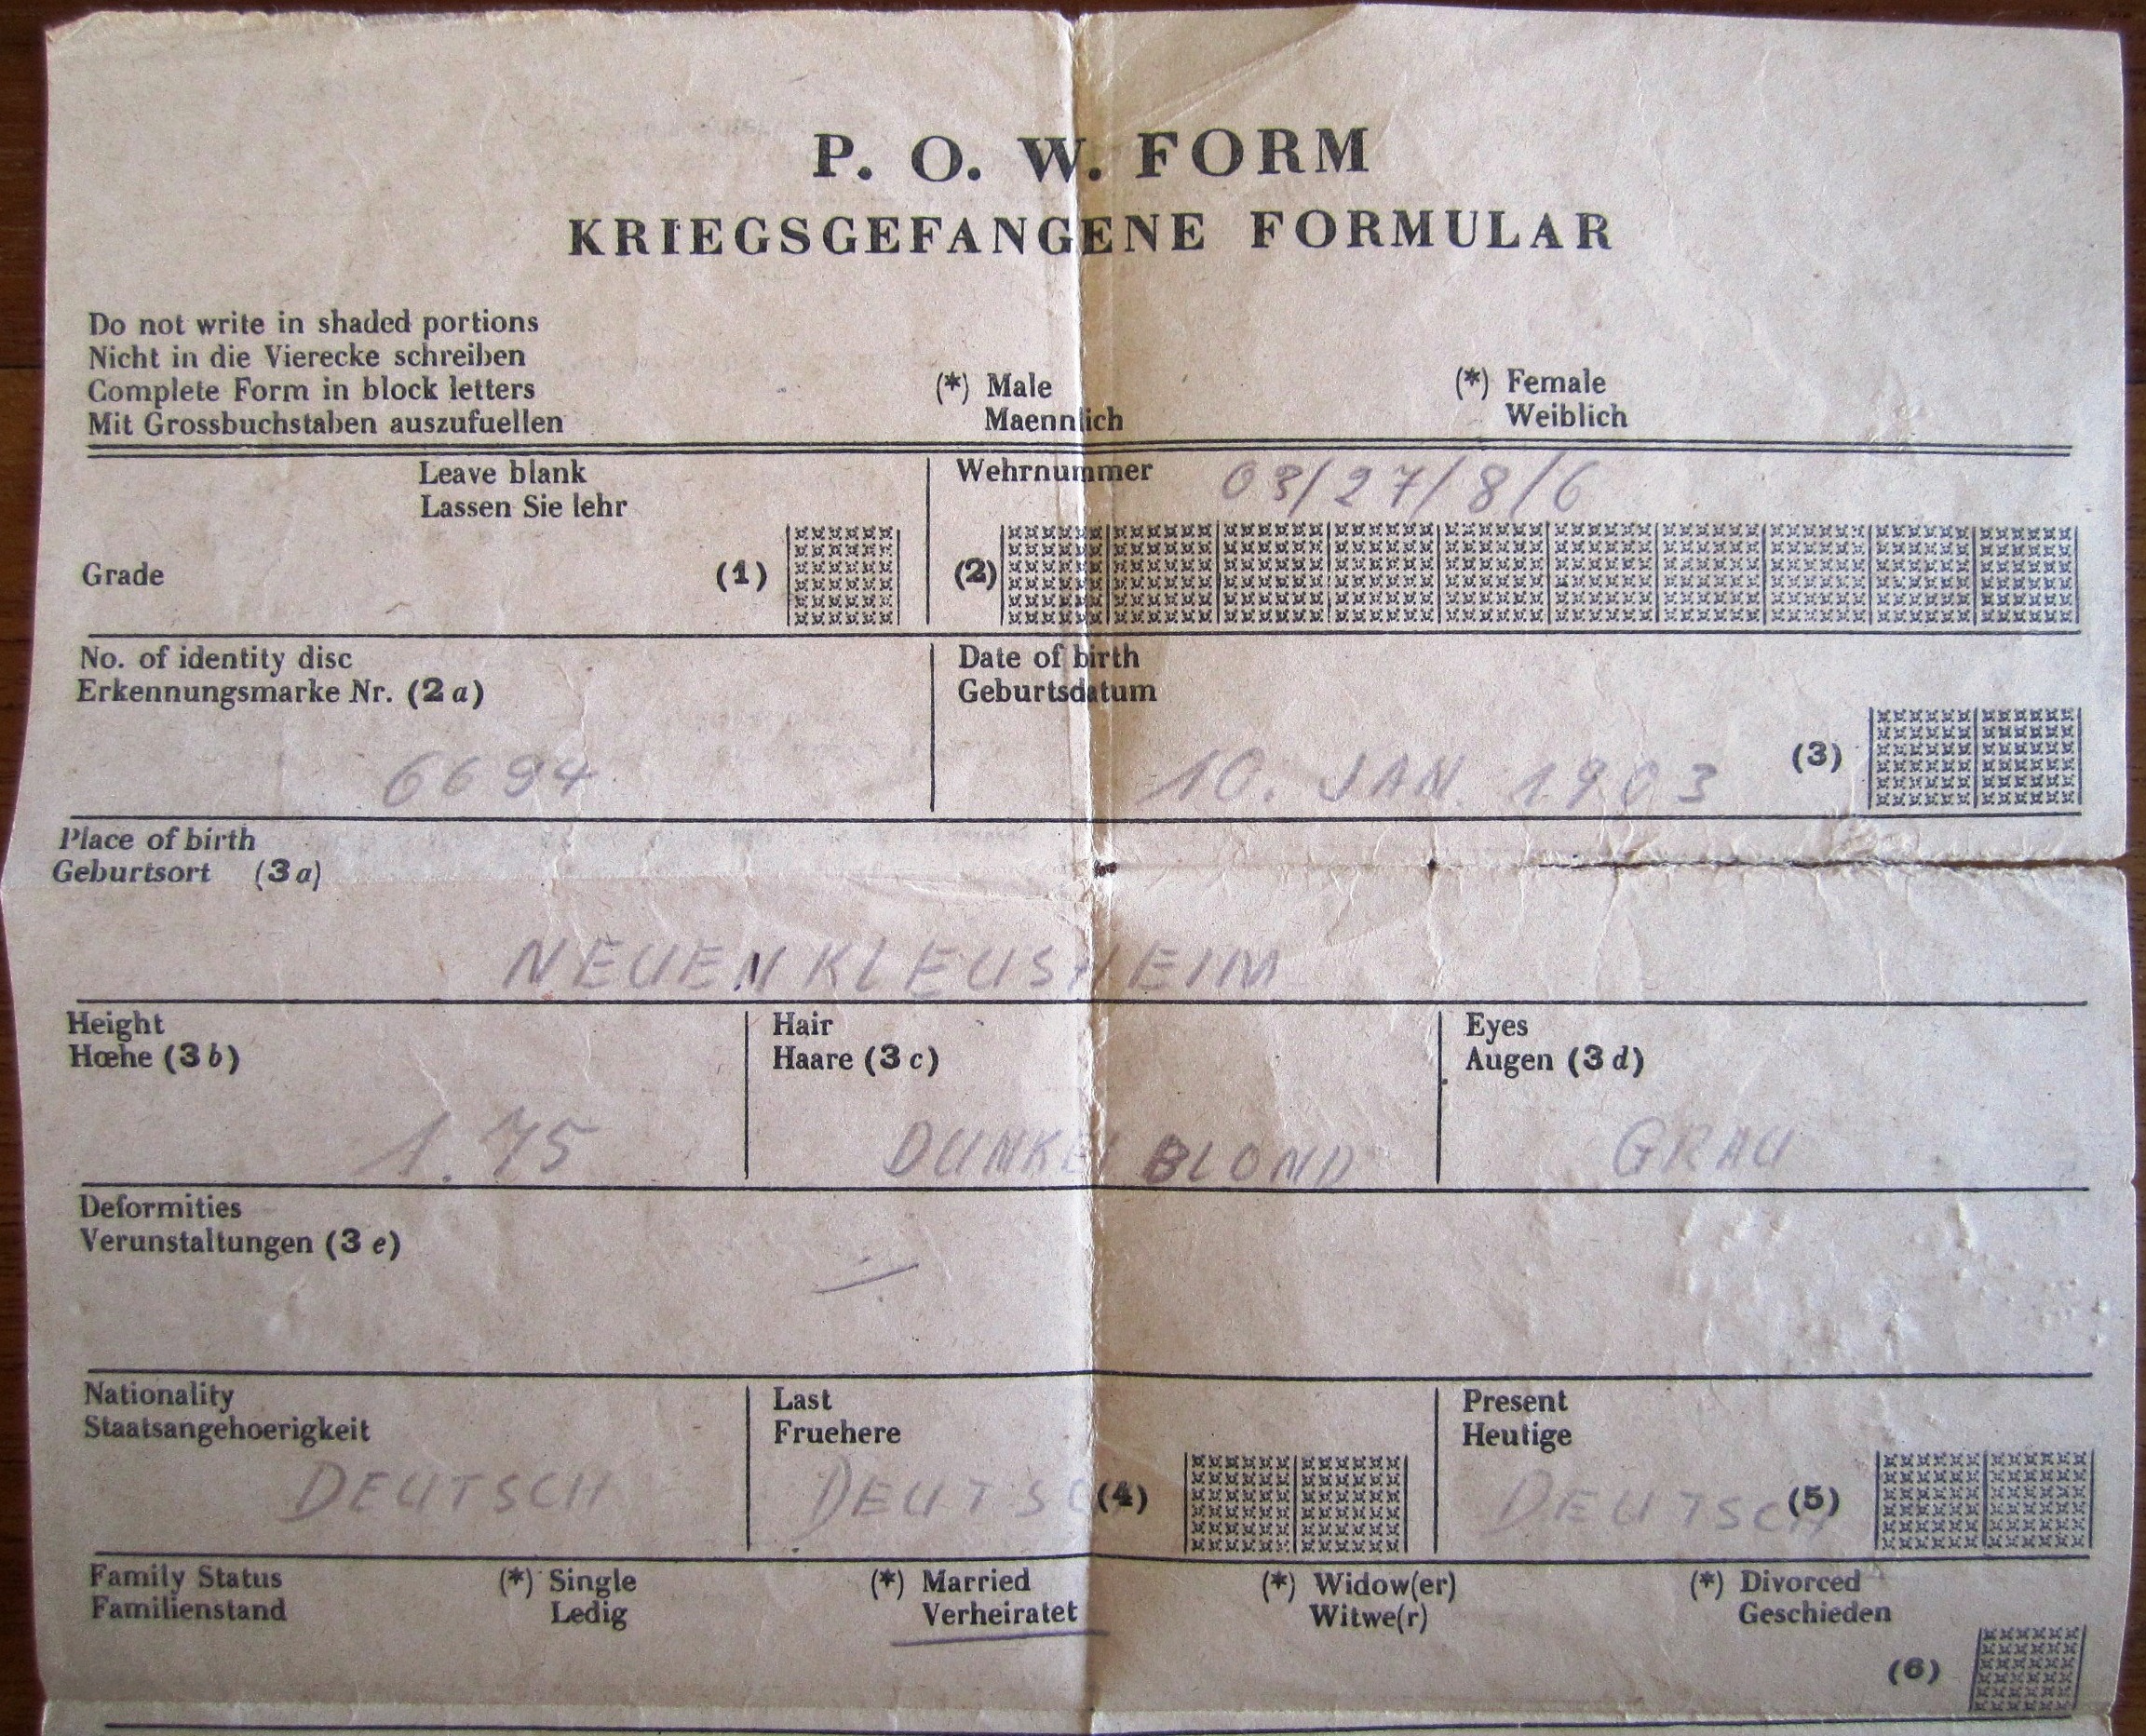 P. O. W. FORM
KRIEGSGEFANGENE FORMULAR
Do not write in shaded portions
Nicht in die Vierecke schreiben
Complete Form in block letters
Mit Grossbuchstaben auszufuellen
(*) Male
Maennlich
(*) Female
Weiblich
Leave blank
Lassen Sie lehr
Grade (1)
Wehrnummer 03/27/8/6
(2)
No. of identity disc
Erkennungsmarke Nr. (2 a)
6694
Date of birth
Geburtsdatum
10. JAN. 1903 (3)
Place of birth
Geburtsort (3 a)
NEUENKLEUSHEIM
Height
Hœhe (3 b)
1.75
Hair
Haare (3 c)
DUNKEL BLOND
Eyes
Augen (3 d)
GRAU
Deformities
Verunstaltungen (3 e)
Nationality
Staatsangehoerigkeit
DEUTSCH
Last
Fruehere
DEUTSC (4)
Present
Heutige
DEUTSCH (5)
Family Status
Familienstand
(*) Single
Ledig
(*) Married
Verheiratet
(*) Widow(er)
Witwe(r)
(*) Divorced
Geschieden
(6)